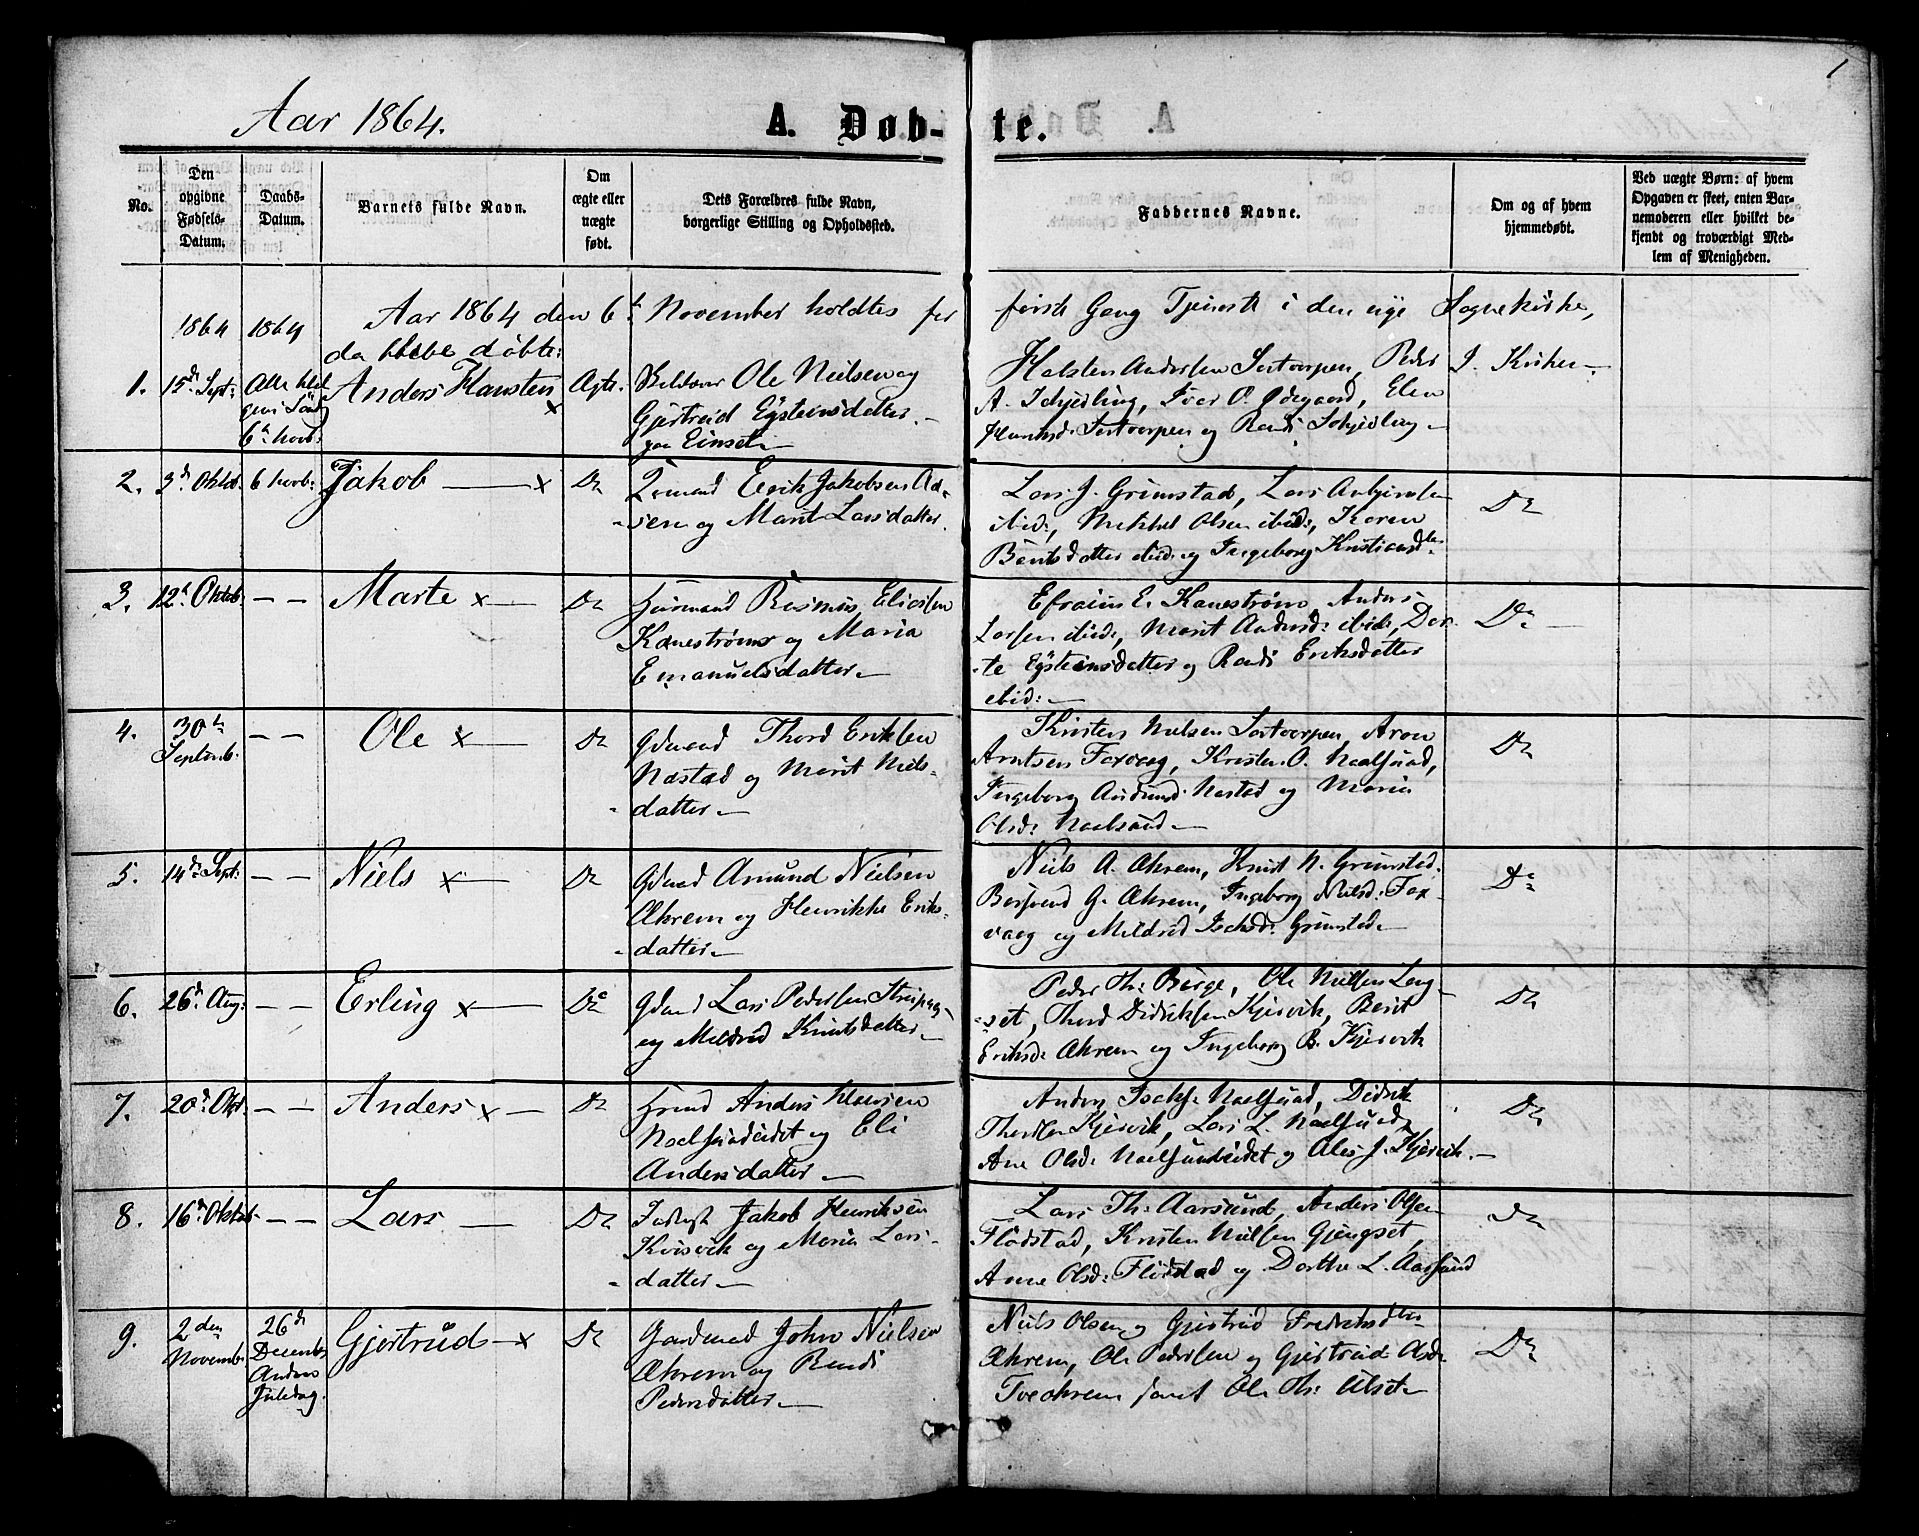 1
Aar 1864.
A. Døb-te.
No.
Den opgivne Fødsels-Datum.
Daabs-Datum.
Barnets fulde Navn.
Om ægte eller uægte født.
Dets Forældres fulde Navn, borgerlige Stilling og Opholdssted.
Faddernes Navne.
Om og af hvem hjemmedøbt.
Ved uægte Børn: af hvem Opgaven er skeet, enten Barnemoderen eller hvilket bekjendt og troværdigt Medlem af Menigheden.
Aar 1864 den 6te November holdtes for første Gang Tjeneste i den nye Sognekirke,
1864 1864 da bleve døbte:
1. 15de Sept: Alle Helgens Sönd 6te Novb: Anders Hansten x Ægte.
Ole Nielsen og
Gjertrud Eysteinsdatter
paa Einset
Halsten Andersen Sortverpen, Peder
A. Schjedling, Iver O. Ødegaard, Elen
Hansd: Sortverpen og Randi Schjedling
I. Kirken
2. 3de Oktob. 6 Novb: Jakob x Do
Erik Jakobsen
og Marit Larsdatter.
Lars J. Grimstad, Lars
ibid:, Mikkel Olsen ibid:, Karen
Bentsdatter ibid: og Ingeborg Kristiansdtr
Do
3. 12te Oktob. Marte x Do
Husmand Rasmus Eliassen
Kanestrøms og Maria
Emanuelsdatter
Efraim E. Kanestrøm, Anders
Larsen ibid:, Marit Andersd: ibid:, Dor-
te Eysteinsdatter og Randi Eriksdatter
ibid:
Do
4. 30te Septemb. Ole x Do
Gdmand Thord Eriksen
Nastad og Marit Niels-
datter
Kristen Nielsen Sortverpen, Aron
Arntsen Foxvaag, Kristen O. Naalsund,
Ingeborg Amunds: Nastad og Maria
Olsd: Naalsund
Do
5. 14de Sept: Niels x Do
Gdmand Amund Nielsen
Ækrem og Henrikke Eriks-
datter
Niels A. Ækrem, Knut N. Grimstad.
G. Ækrem, Ingeborg Nielsd: Fox-
vaag og Mildrid Isaksd: Grimstad
Do
6. 26de Aug: Erling x Do
Gdmand Lars Pedersen
og Mildrid Knutsdatter
Peder Th: Berge, Ole Nielsen Leng-
set, Thord Didriksen Kjørsvik, Berit
Eriksd: Ækrem og Ingeborg B. Kjørsvik
Do
7. 20de Okt. Anders x Do
Anders Hansen
Naalsundeidet og Eli
Andersdatter
Anders Isaks: Naalsund, Didrik
Thordsen Kjørsvik, Lars L. Naalsund,
Ane Olsd: Naalsundeidet og Ales J. Kjørsvik.
Do
8. 16de Oktob. Lars Do
Jakob Henriksen
Kvisvik og Maria Lars-
datter
Lars Th: Aarsund, Anders Olsen
Flodstad, Kristen Nielsen Gjengset,
Anne Olsd: Flodstad og Dorthe L. Aarsund
Do
9. 2den Novemb: 26de Decemb: Anden Juledag. Gjertrud x Do
Gaardmand John Nielsen
Ækrem og Randi
Pedersdatter
Niels Olsen og Gjertrud Fredriksdtr
Ækrem, Ole Pedersen og Gjertrud Olsd:
Tveækrem samt Ole Th: Ulset
Do